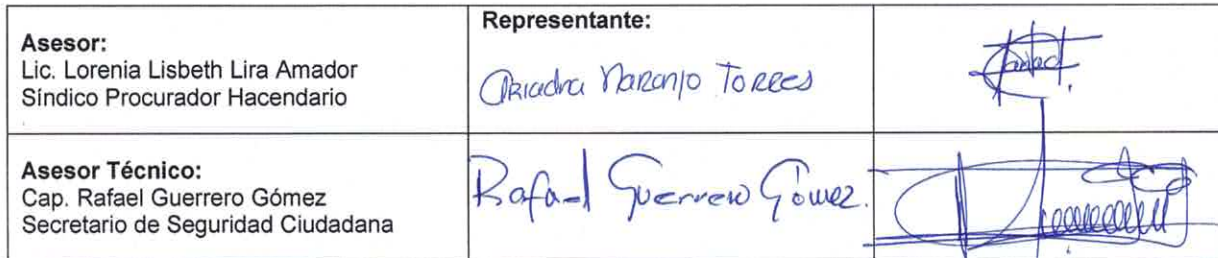 Asesor:
Lic. Lorenia Lisbeth Lira Amador
Síndico Procurador Hacendario
Representante:
Ariadna Naranjo Torres
Asesor Técnico:
Cap. Rafael Guerrero Gómez
Secretario de Seguridad Ciudadana
Rafael Guerrero Gómez.